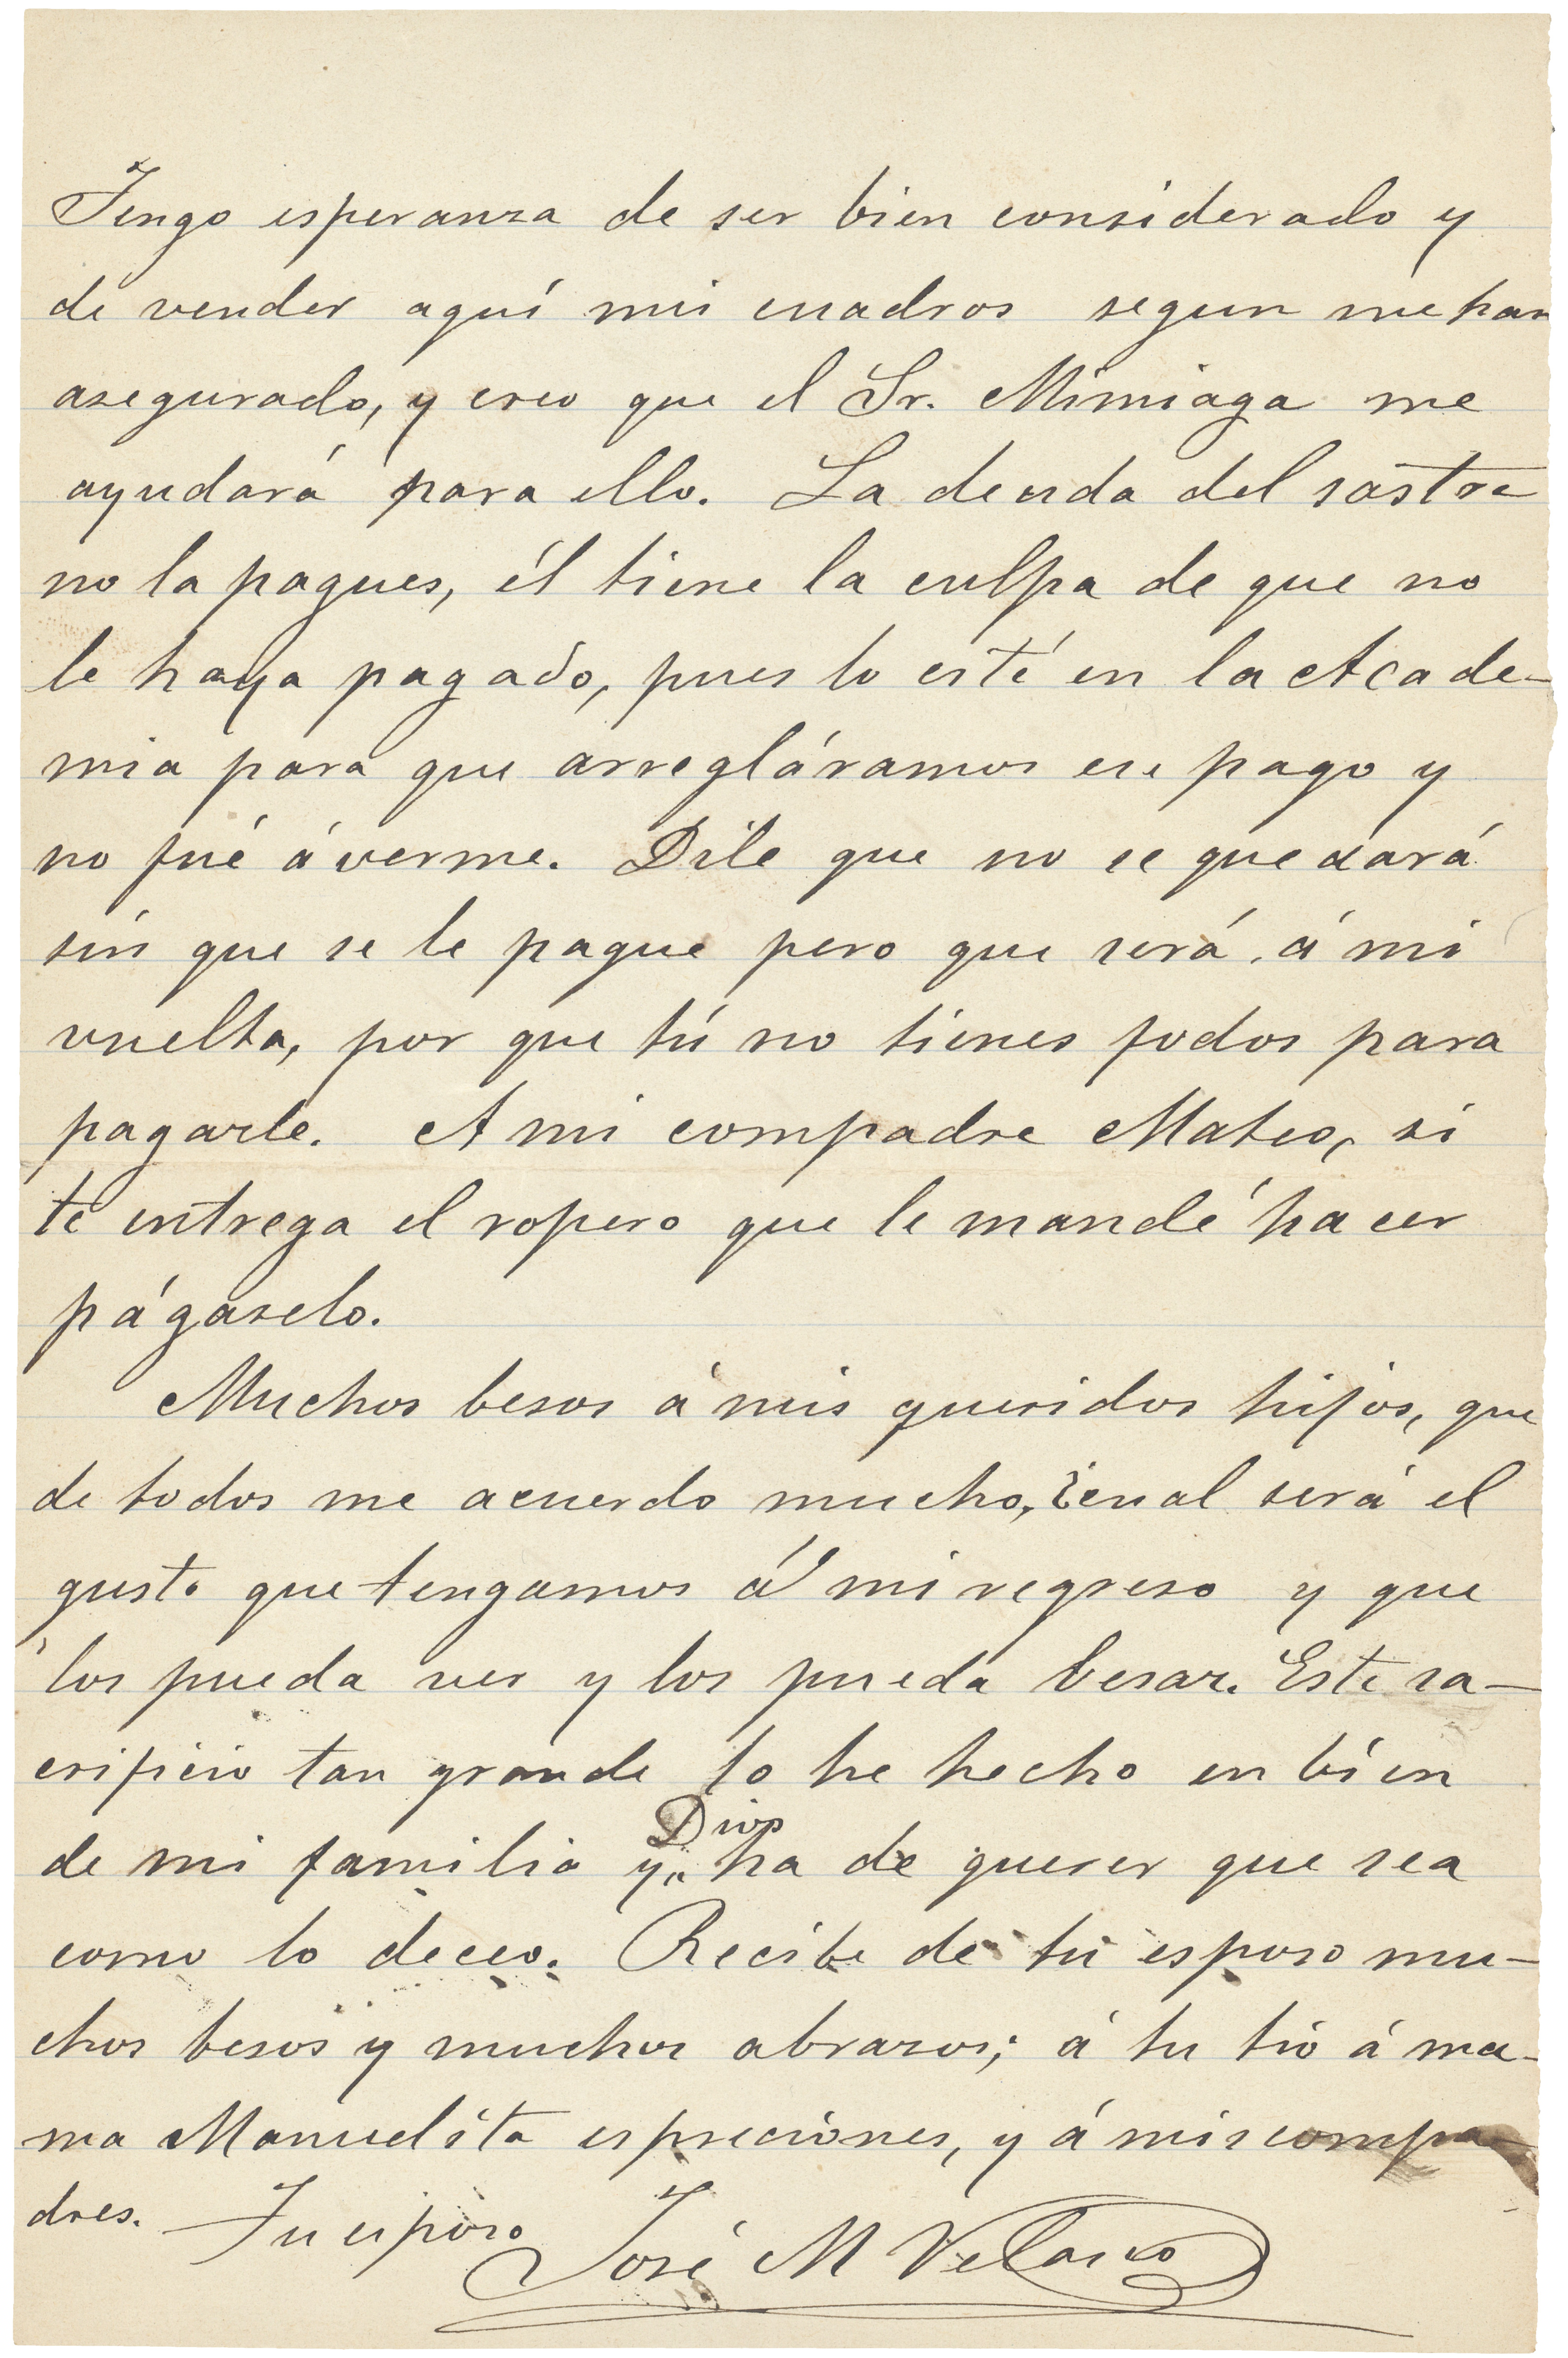 Tengo esperanza de ser bien considerado y
de vender aquí mis cuadros segun me han
asegurado, y creo que el Sr. Mimiaga me
ayudará para ello. La deuda del sastre
no la pagues, él tiene la culpa de que no
le haya pagado, pues lo cité en la Acade-
mia para que arregláramos ese pago y
no fué á verme. Dile que no se quedará
sin que se le pague pero que será á mi
vuelta, por que tú no tienes fodos para
pagarle. A mi compadre Mateo, si
te entrega el ropero que le mandé hacer
págaselo.
Muchos besos á mis queridos hijos, que
de todos me acuerdo mucho, ¿cual será el
gusto que tengamos á mi regreso y que
los pueda ver y los pueda besar. Este sa-
crificio tan grande lo he hecho en bien
de mi familia y Dios ha de querer que sea
como lo deceo. Recibe de tu esposo mu-
chos besos y muchos abrazos; á tu tío á ma-
ma Manuelita espreciones, y á mis compa-
dres. Tu esposo José M Velasco